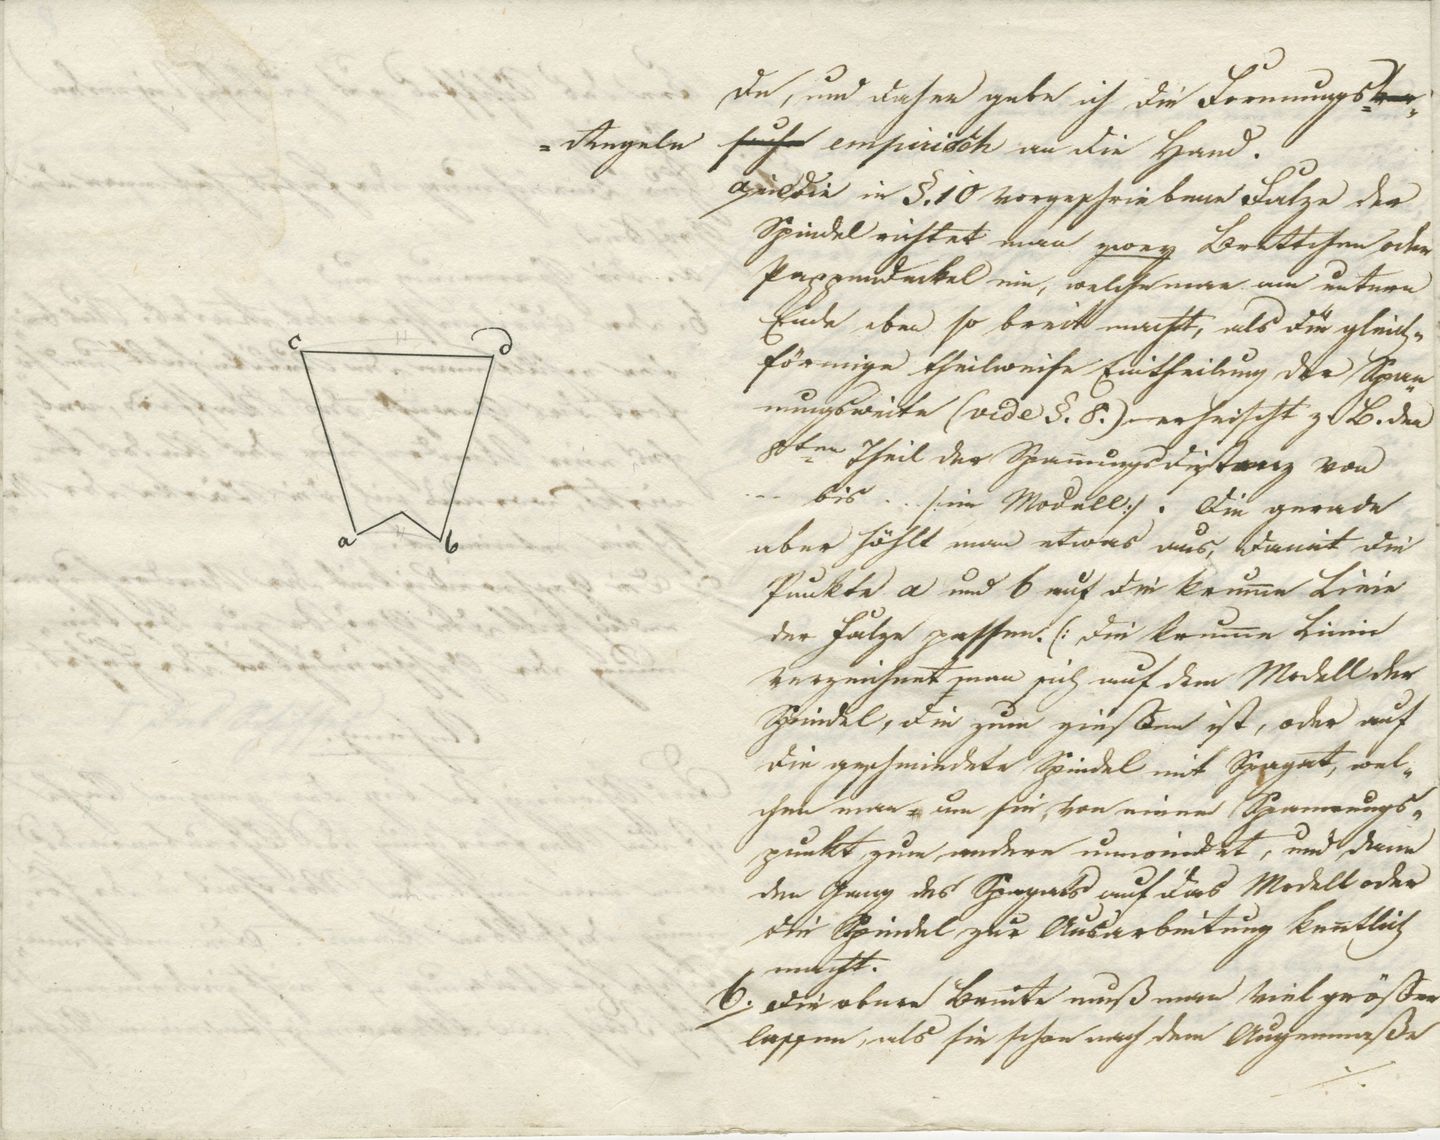 c d
a b
de, und daher gebe ich die Formungs=
=Regeln empirisch an die Hand.
a, in die in §.10 vorgeschriebene Falze der
Spindel richtet man zwey Brettchen oder
Pappendeckel ein, welche man am untern
Ende eben so breit macht, als die gleich=
förmige theilweise Eintheilung der Span=
nungsweite (vide §. 8.) erheischt z. B. den
8ten Theil der Spannungsdistanz von
--- bis . . /: im Modell :/. Die gerade
aber höhlt man etwas aus, damit die
Punkte a und b auf die krumme Linie
der Falze passen. (: die krumme Linie
verzeichnet man sich auf dem Modell der
Spindel, die zum gießen ist, oder auf
die geschmiedete Spindel mit Spagat, wel=
chen man um sie, von einem Spannungs=
punkt zum andern umwindet, und dann
den Gang des Spagats auf das Modell oder
die Spindel zur Ausarbeitung kenntlich
macht.
b. die obere Breite muß man viel größer
lassen, als sie schon nach dem Augenmaße
./.